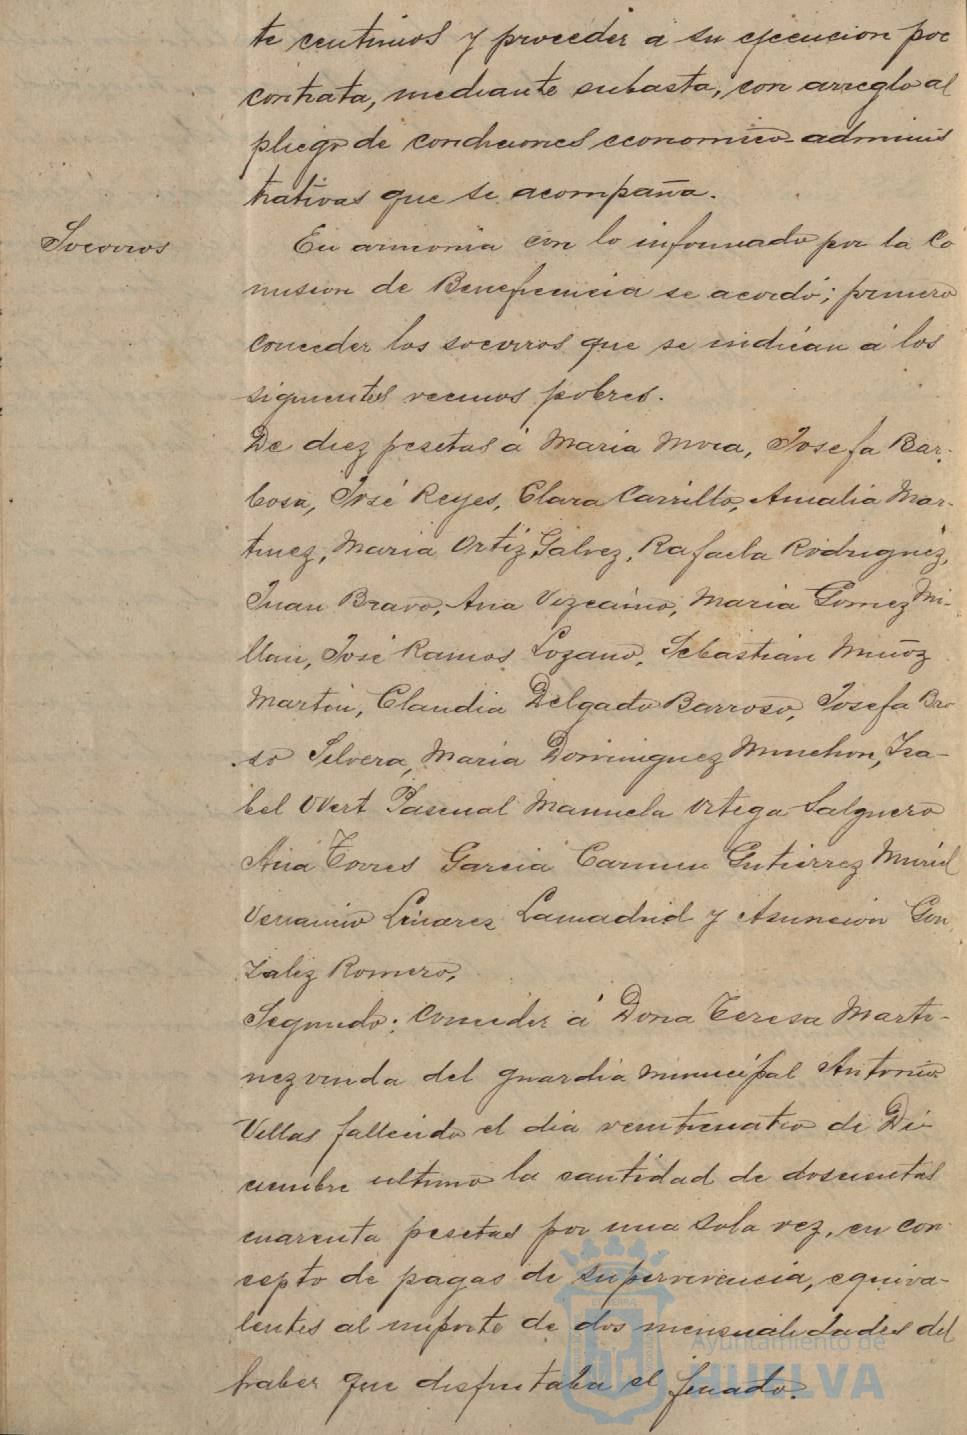 te centimos y proceder a su ejecucion por
contrata, mediante subasta, con arreglo al
pliego de condiciones economico-adminis
trativas que se acompaña.
Socorros
En armonia con lo informado por la Co
mision de Beneficencia se acordó; primero
conceder los socorros que se indican á los
siguientes vecinos pobres.
De diez pesetas á Maria Mora, Josefa Bar-
bosa, José Reyes, Clara Carrillo, Amalia Mar-
tinez, Maria Ortiz Galvez, Rafaela Rodriguez,
Juan Bravo, Ana Vizcaino, Maria Gomez Mi-
llan, José Ramos Lozano, Sebastian Muñoz
Martin, Claudia Delgado Barroso, Josefa Bro
so Silvera, Maria Dominiguez Minchon, Isa-
bel Wert Pascual Manuela Ortega Salguero
Ana Torres Garcia Carmen Gutierrez Muriel
Venancio Linares Lamadrid y Asuncion Gon
zalez Romero,
Segundo: Conceder á Dona Teresa Marti-
nez viuda del guardia municipal Antonio
Villas fallecido el dia veinticuatro de Di-
ciembre ultimo la cantidad de doscientas
cuarenta pesetas por una sola vez, en con-
cepto de pagas de supervivencia, equiva-
lentes al importe de dos mensualidades del
haber que disfrutaba el finado.
Ayuntamiento de
HUELVA